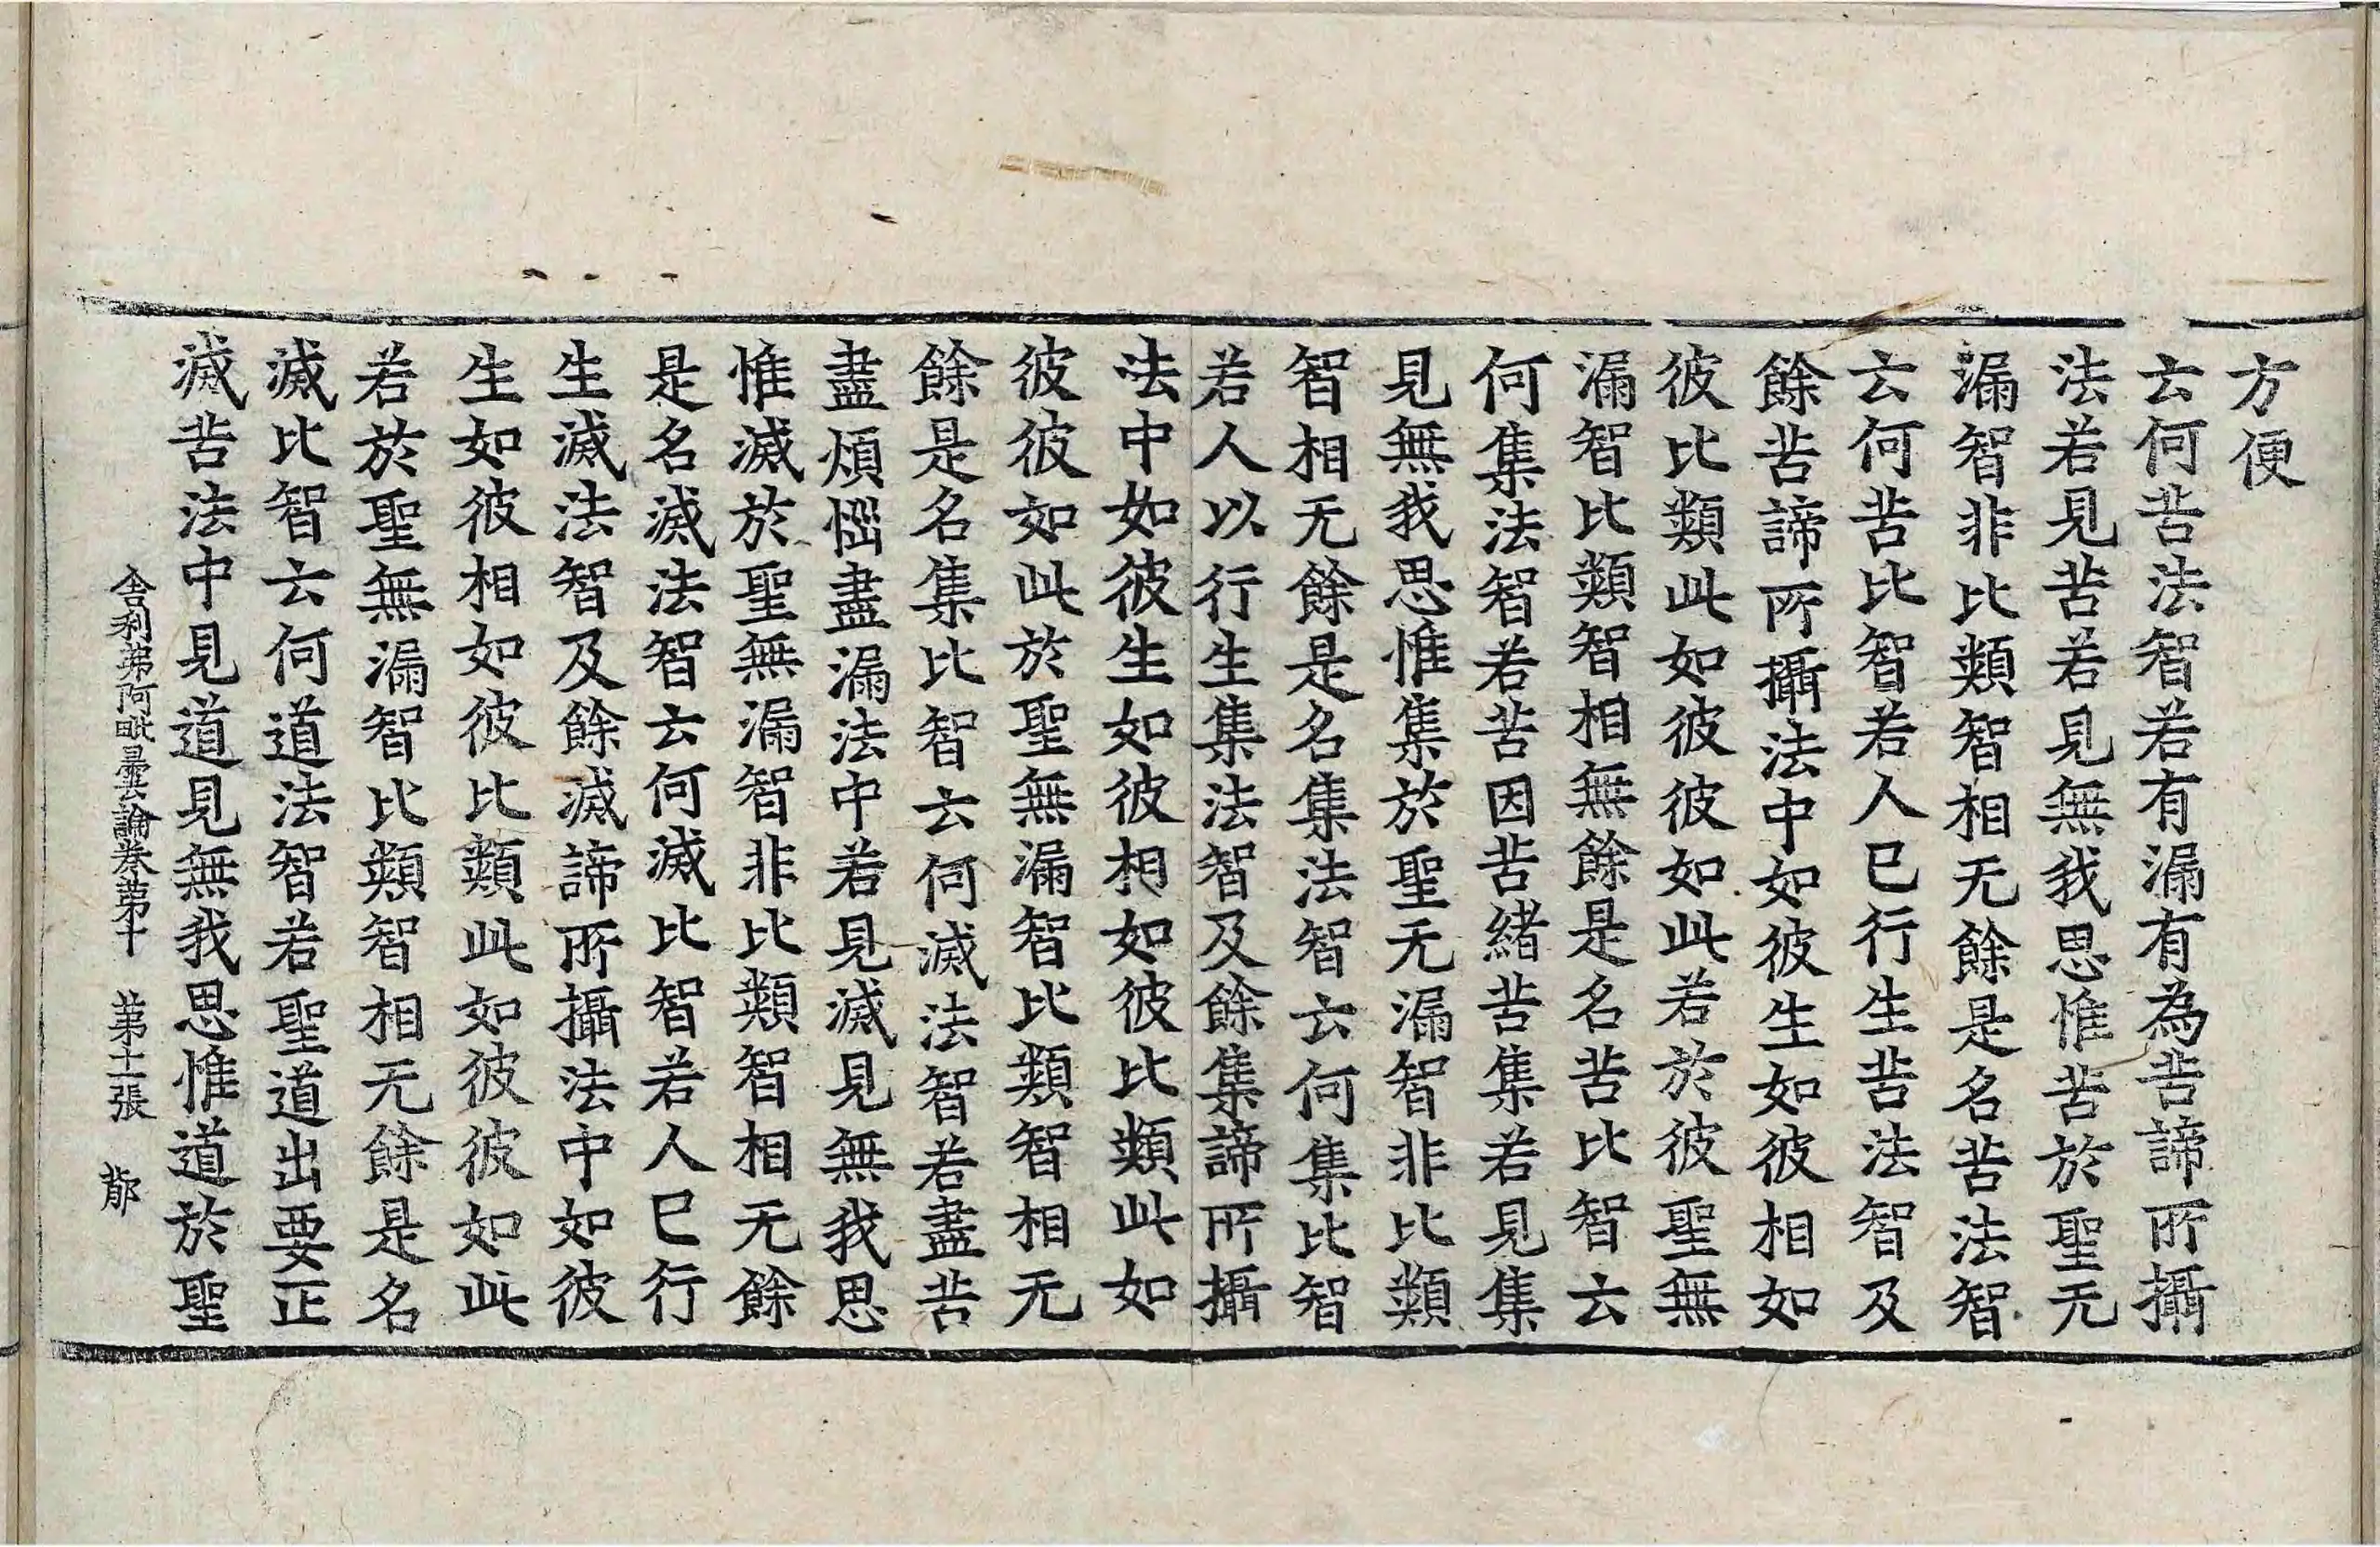 方便
云何苦法智若有漏有為苦諦所攝
法若見苦若見無我思惟苦於聖无
漏智非比類智相无餘是名苦法智
云何苦比智若人已行生苦法智及
餘苦諦所攝法中如彼生如彼相如
彼比類此如彼彼如此若於彼聖無
漏智比類智相無餘是名苦比智云
何集法智若苦因苦緒苦集若見集
見無我思惟集於聖无漏智非比類
智相无餘是名集法智云何集比智
若人以行生集法智及餘集諦所攝
法中如彼生如彼相如彼比類此如
彼彼如此於聖無漏智比類智相无
餘是名集比智云何滅法智若盡苦
盡煩惱盡漏法中若見滅見無我思
惟滅於聖無漏智非比類智相无餘
是名滅法智云何滅比智若人已行
生滅法智及餘滅諦所攝法中如彼
生如彼相如彼比類此如彼彼如此
若於聖無漏智比類智相无餘是名
滅比智云何道法智若聖道出要正
滅苦法中見道見無我思惟道於聖
舍利弗阿毗曇論卷第十 第十二張